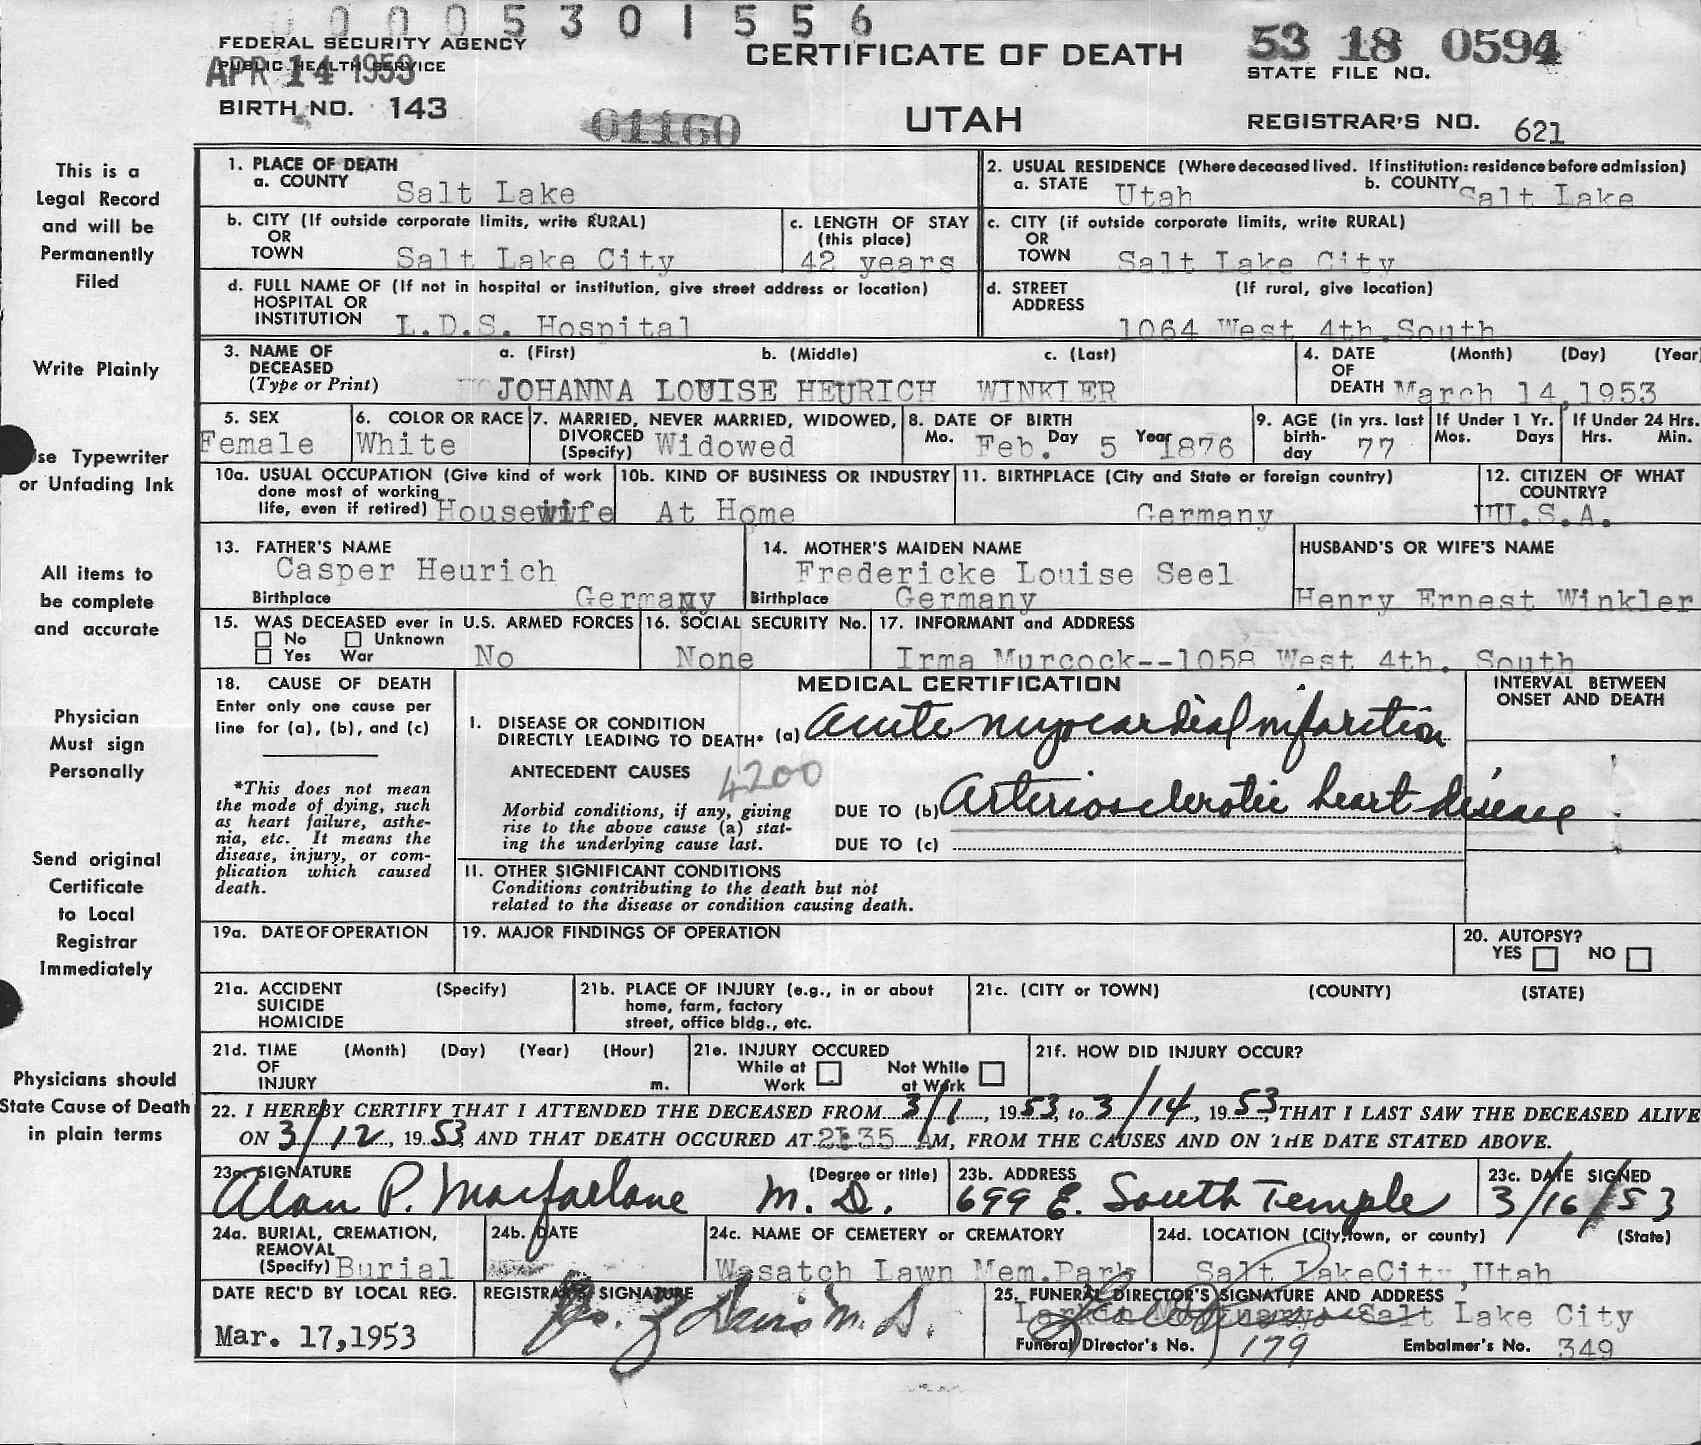 0005301556
FEDERAL SECURITY AGENCY
PUBLIC HEALTH SERVICE
APR 14 1953
BIRTH NO. 143
01160
CERTIFICATE OF DEATH
UTAH
53 18 0594
STATE FILE NO.
REGISTRAR'S NO. 621
This is a
Legal Record
and will be
Permanently
Filed
Write Plainly
Use Typewriter
or Unfading Ink
All items to
be complete
and accurate
Physician
Must sign
Personally
Send original
Certificate
to Local
Registrar
Immediately
Physicians should
State Cause of Death
in plain terms
1. PLACE OF DEATH
a. COUNTY Salt Lake
2. USUAL RESIDENCE (Where deceased lived. If institution: residence before admission)
a. STATE Utah b. COUNTY Salt Lake
b. CITY (If outside corporate limits, write RURAL)
OR
TOWN Salt Lake City
c. LENGTH OF STAY
(this place)
42 years
c. CITY (if outside corporate limits, write RURAL)
OR
TOWN Salt Lake City
d. FULL NAME OF (If not in hospital or institution, give street address or location)
HOSPITAL OR
INSTITUTION L.D.S. Hospital
d. STREET (If rural, give location)
ADDRESS
1064 West 4th South
3. NAME OF
DECEASED
(Type or Print)
a. (First) b. (Middle) c. (Last)
JOHANNA LOUISE HEURICH WINKLER
4. DATE (Month) (Day) (Year)
OF
DEATH March 14, 1953
5. SEX
Female
6. COLOR OR RACE
White
7. MARRIED, NEVER MARRIED, WIDOWED,
DIVORCED
(Specify) Widowed
8. DATE OF BIRTH
Mo. Feb. Day 5 Year 1876
9. AGE (in yrs. last
birth-
day 77
If Under 1 Yr.
Mos. Days
If Under 24 Hrs.
Hrs. Min.
10a. USUAL OCCUPATION (Give kind of work
done most of working
life, even if retired) Housewife
10b. KIND OF BUSINESS OR INDUSTRY
At Home
11. BIRTHPLACE (City and State or foreign country)
Germany
12. CITIZEN OF WHAT
COUNTRY?
U.S.A.
13. FATHER'S NAME
Casper Heurich
Birthplace Germany
14. MOTHER'S MAIDEN NAME
Fredericke Louise Seel
Birthplace Germany
HUSBAND'S OR WIFE'S NAME
Henry Ernest Winkler
15. WAS DECEASED ever in U.S. ARMED FORCES
No Unknown
Yes War No
16. SOCIAL SECURITY No.
None
17. INFORMANT and ADDRESS
Irma Murcock--1058 West 4th. South
18. CAUSE OF DEATH
Enter only one cause per
line for (a), (b), and (c)
*This does not mean
the mode of dying, such
as heart failure, asthe-
nia, etc. It means the
disease, injury, or com-
plication which caused
death.
MEDICAL CERTIFICATION
INTERVAL BETWEEN
ONSET AND DEATH
I. DISEASE OR CONDITION
DIRECTLY LEADING TO DEATH* (a) Acute myocardial infarction
ANTECEDENT CAUSES 4200
Morbid conditions, if any, giving
rise to the above cause (a) stat-
ing the underlying cause last.
DUE TO (b) Arteriosclerotic heart disease
DUE TO (c)
II. OTHER SIGNIFICANT CONDITIONS
Conditions contributing to the death but not
related to the disease or condition causing death.
19a. DATE OF OPERATION
19. MAJOR FINDINGS OF OPERATION
20. AUTOPSY?
YES NO
21a. ACCIDENT (Specify)
SUICIDE
HOMICIDE
21b. PLACE OF INJURY (e.g., in or about
home, farm, factory
street, office bldg., etc.
21c. (CITY or TOWN) (COUNTY) (STATE)
21d. TIME (Month) (Day) (Year) (Hour)
OF
INJURY m.
21e. INJURY OCCURED
While at Work Not While at Work
21f. HOW DID INJURY OCCUR?
22. I HEREBY CERTIFY THAT I ATTENDED THE DECEASED FROM 3/1, 1953, to 3/14, 1953, THAT I LAST SAW THE DECEASED ALIVE
ON 3/12, 1953, AND THAT DEATH OCCURED AT 2:35 AM, FROM THE CAUSES AND ON THE DATE STATED ABOVE.
23a. SIGNATURE (Degree or title)
Alan P. Macfarlane M.D.
23b. ADDRESS
699 E. South Temple
23c. DATE SIGNED
3/16/53
24a. BURIAL, CREMATION,
REMOVAL
(Specify) Burial
24b. DATE
24c. NAME OF CEMETERY or CREMATORY
Wasatch Lawn Mem. Park
24d. LOCATION (City, town, or county) (State)
Salt Lake City, Utah
DATE REC'D BY LOCAL REG.
Mar. 17, 1953
REGISTRAR'S SIGNATURE
Davis M.D.
25. FUNERAL DIRECTOR'S SIGNATURE AND ADDRESS
Larkin Mortuary Salt Lake City
Funeral Director's No. 179 Embalmer's No. 349